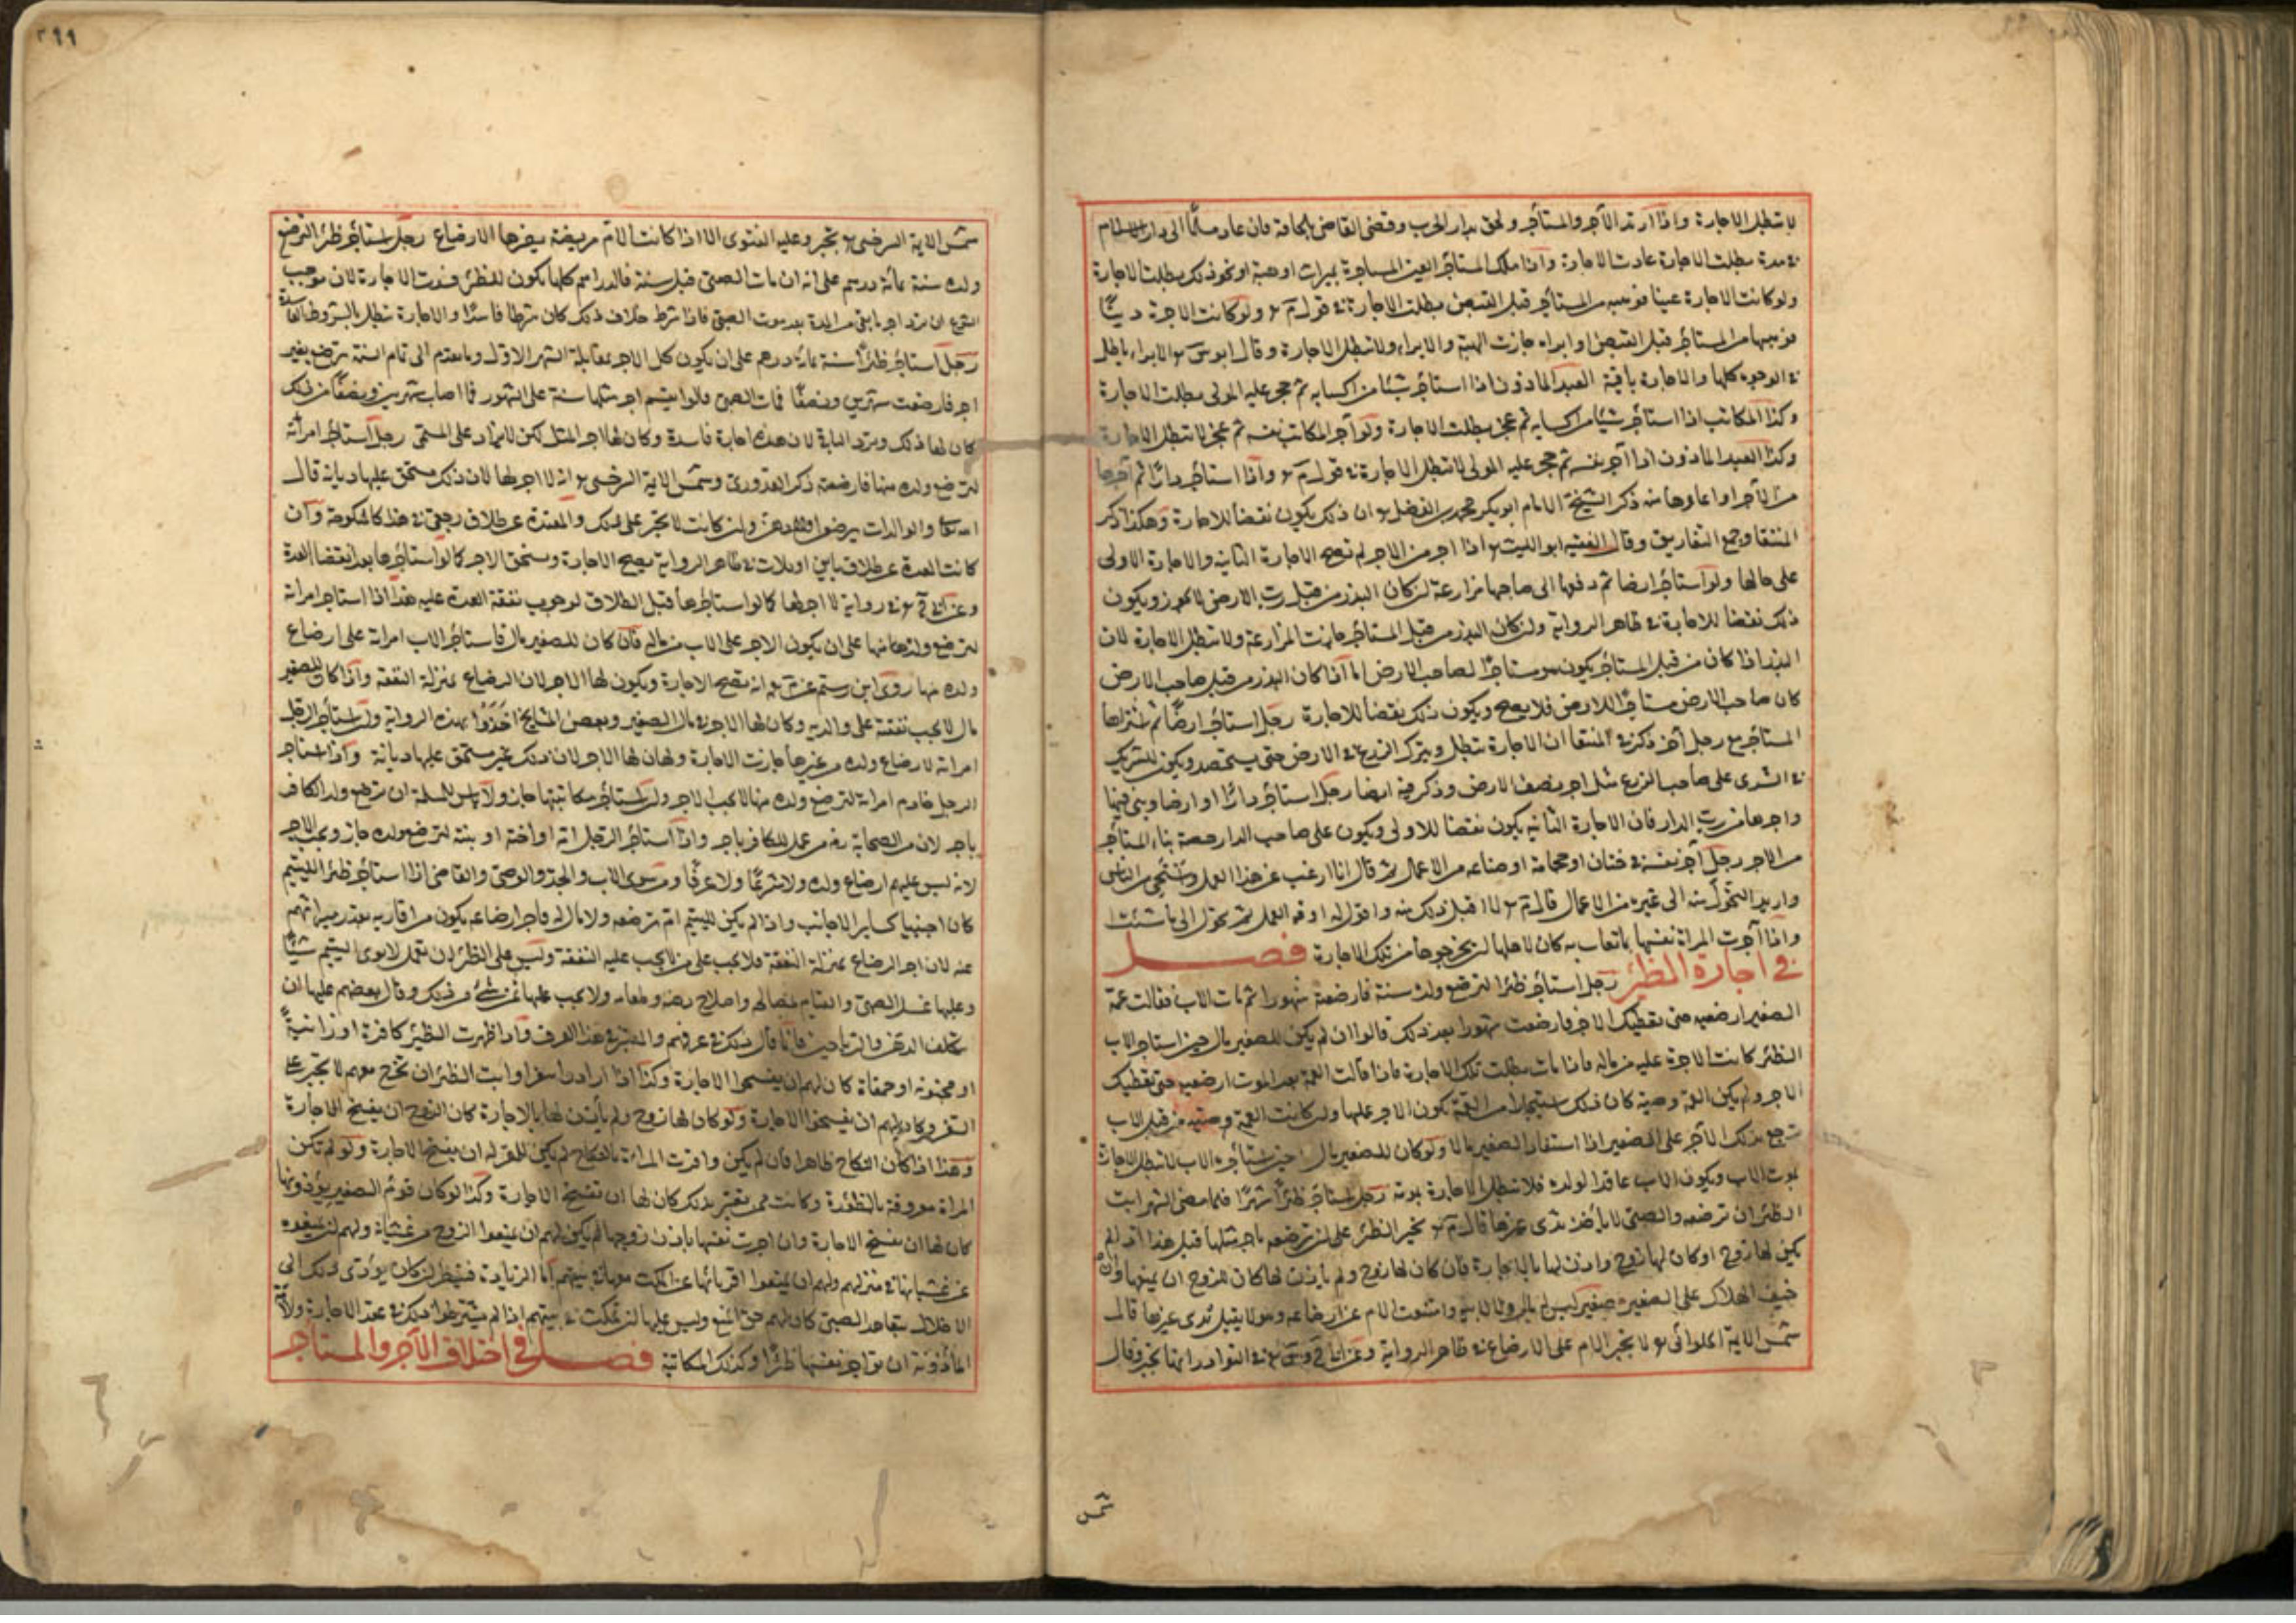 لا تبطل الاجارة واذا ارتد الآجر والمستأجر ولحق بدار الحرب وقضى القاضى بلحاقه فان عاد مسلما الى دار الاسلام
مدة بطلت الاجارة عادت الاجارة واذا ملك المستأجر العين المستاجرة بميراث او هبة او نحو ذلك بطلت الاجارة
ولو كانت الاجارة عينا فوهبه من المستأجر قبل القبض بطلت الاجارة قول ولو كانت الاجرة دينًا
فوهبها من المستأجر قبل القبض او ابراه جازت الهبة والابراء ولا تبطل الاجارة وقال ابو الابراء باطل
الوجوه كلها والاجارة باقية العبد الماذون اذا استأجر شيئا من اكسابه ثم حجر عليه المولى بطلت الاجارة
وكذا المكاتب اذا استأجر شيئا من اكسابه ثم عجز بطلت الاجارة ولو آجر المكاتب نفسه ثم عجز لا تبطل الاجارة
وكذا العبد الماذون اذا آجر نفسه ثم حجر عليه المولى لا تبطل الاجارة قول واذا استأجر دارًا ثم آجرها
من الآجر او اعارها منه ذكر الشيخ الامام ابو بكر محمد بن الفضل ان ذلك يكون نقضا للاجارة وهكذا ذكر
المنتقا وجمع التفاريق وقال الفقيه ابو الليث اذا اجر من الآجر لم تصح الاجارة الثانية والاجارة الاولى
على حالها ولو استأجر ارضا ثم دفعها الى صاحبها مزارعة ان كان البذر من قبل رب الارض لا يجوز ويكون
ذلك نقضا للاجارة ظاهر الرواية وان كان البذر من قبل المستأجر جازت المزارعة ولا تبطل الاجارة لان
البذر اذا كان من قبل المستأجر يكون مستاجرًا لصاحب الارض اما اذا كان البذر من قبل صاحب الارض
كان صاحب الارض مستأجرا للارض فلا يصح ويكون ذلك نقضا للاجارة رجل استأجر ارضًا ثم اشتراها
المستأجر مع رجل آخر ذكر المنتقا ان الاجارة تبطل ويترك الزرع الارض حتى يستحصد ويكون للشريك
الشرى على صاحب الزرع مثل اجر نصف الارض وذكر فيه ايضا رجل استأجر دارًا او ارضا وبنى فيها
واجرها من رب الدار فان الاجارة الثانية يكون نقضا للاولى ويكون على صاحب الدار حصة بناء المستأجر
من الاجر رجل آجر نفسه ختان او حجامة او صناعه من الاعمال ثم قال انا ارغب عن هذا العمل من الناس
واريد التحول منه الى غيره من الاعمال قال لا اقبل ذلك منه واقول له اوف العمل ثم تحول الى ما شئت
واذا آجرت المراة نفسها بما تعاب به كان لاهلها ان يخرجوها من تلك الاجارة فصل
في اجارة الظئر رجل استأجر ظئرا لترضع ولده سنة فارضعته شهورا ثم مات الاب فقالت عمة
الصغير ارضعيه حتى نعطيك الاجر فارضعت شهورا بعد ذلك قالوا ان لم يكن للصغير مال حين استاجر الاب
الظئر كانت الاجرة عليه من ماله فاذا مات بطلت تلك الاجارة فاذا قالت العمة بعد الموت ارضعيه حتى نعطيك
الاجر ولم يكن العمة وصية كان ذلك استيجارا من العمة تكون الاجر عليها وان كانت العمة وصية من قبل الاب
ترجع بذلك الآجر على الصغير اذا استفاد الصغير مالا ولو كان للصغير مال حين استأجره الاب لا تبطل الاجارة
بموت الاب ويكون الاب عاقدا لولده فلا تبطل الاجارة بموته رجل استأجر ظئرًا شهرًا فلما مضى الشهر ابت
الظئر ان ترضعه والصبى لا يأخذ ثدى غيرها قال تجبر الظئر على ان ترضعه باجر مثلها قيل هذا اذا لم
يكن لها زوج او كان لها زوج واذن لها بالاجارة فان كان لها زوج ولم ياذن لها كان للزوج ان يمنعها وان
خيف الهلاك على الصغير صغير ليس له مال ولا لابيه وامتنعت الام عن ارضاعه وهو لا يقبل ثدى غيرها قال
شمس الاية الحلوانى لا تجبر الام على الارضاع ظاهر الرواية وعن النوادر انها تجبر وقال
شمس
٢٩٩
شمس الاية السرخسى تجبر وعليه الفتوى الا اذا كانت الام مريضة يضرها الارضاع رجل استأجر ظئرا لترضع
ولده سنة بمائة درهم على انه ان مات الصبى قبل سنة فالدراهم كلها يكون للظئر فسدت الاجارة لان موجب
الشرع ان يرد اجر ما بقى من المدة بعد موت الصبى فاذا شرط خلاف ذلك كان شرطا فاسدًا والاجارة تبطل بالشروط الفاسدة
رجل استأجر ظئرًا سنة بمائة درهم على ان يكون كل الاجر بمقابلة الشهر الاول وما بعده الى تمام السنة ترضع بغير
اجر فارضعت شهرين ونصفًا فمات الصبى قالوا يقسم اجر مثلها سنة على الشهور فما اصاب شهرين ونصفًا من ذلك
كان لها ذلك وترد الباقى لان هذه اجارة فاسدة وكان لها اجر المثل لكن لا يزاد على المسمى رجل استأجر امراته
لترضع ولده منها فارضعته ذكر القدورى وشمس الاية السرخسى انه لا اجر لها لان ذلك مستحق عليها ديانة قال
الله تعالى والوالدات يرضعن اولادهن وان كانت لا تجبر على ذلك والمعتدة عن طلاق رجعى هذا كالمنكوحة وان
كانت العدة عن طلاق باين او ثلاث ظاهر الرواية يصح الاجارة وتستحق الاجر كما لو استأجرها بعد انقضاء العدة
وعن رواية لا اجر لها كما لو استاجرها قبل الطلاق لوجوب نفقة العدة عليه هذا اذا استأجر امراته
لترضع ولدها منها على ان يكون الاجر على الاب من ماله فان كان للصغير مال فاستأجر الاب امراته على ارضاع
ولده منها روى ابن رستم عن انه تصح الاجارة ويكون لها الاجر لان الرضاع بمنزلة النفقة واذا كان للصغير
مال لا يجب نفقته على والديه وكان لها الاجر مال الصغير وبعض المشايخ اخذوا بهذه الرواية ولو استأجر الرجل
امراته لارضاع ولده من غيرها جازت الاجارة وكان لها الاجر لان ذلك غير مستحق عليها ديانة واذا استأجر
الرجل خادم امراته لترضع ولده منها لا يجب الاجر ولو استأجر مكاتبتها جاز ولا باس للمسلمة ان ترضع ولد الكافر
باجر لان من الصحابة رض من عمل للكافر باجر واذا استأجر الرجل امه او اخته او بنته لترضع ولده جاز ويجب الاجر
لانه ليس عليهم ارضاع ولده ولا شرعًا ولا عرفًا وسوى الاب والجد والوصى والقاضى اذا استأجر ظئرا لليتيم
كان اجنبيا كساير الاجانب واذا لم يكن لليتيم ام ترضعه ولا مال له فاجر ارضاعه يكون من اقاربه بقدر ميراثهم
عنه لان اجر الرضاع بمنزلة النفقة فلا يجب على من لا يجب عليه النفقة وليس على الظئر ان تعمل لابوى اليتيم شيئًا
وعليها غسل الصبى والقيام بمصالحه واصلاح رضه وطعامه ولا يجب عليها ثمن شئ من ذلك وقال بعضهم عليها ان
تتكلف الدهن والرياحين فانما قال ذلك عرفهم والمعتبر هذا العرف واذا ظهرت الظئر كافرة او زانية
او مجنونه او حمقاة كان لهم ان يفسخوا الاجارة وكذا اذا ارادوا سفرا وابت الظئر ان تخرج معهم لا تجبر على
السفر وكان لهم ان يفسخوا الاجارة ولو كان لها زوج ولم ياذن لها بالاجارة كان للزوج ان يفسخ الاجارة
وهذا اذا كان النكاح ظاهرا فان لم يكن واقرت المراءة بالنكاح لم يكن للمقر له ان يفسخ الاجارة ولو لم تكن
المراة معروفة بالظئورة وكانت ممن تعير بذلك كان لها ان تفسخ الاجارة وكذا لو كان قوم الصغير يؤذونها
كان لها ان تفسخ الاجارة وان اجرت نفسها باذن زوجها لم يكن لهم ان يمنعوا الزوج من غشيانه ولهم ان يمنعوه
عن غشيانها منزلهم ولهم ان يمنعوا اقربائها عن المكث معها بيتهم اما الزيارة فينظر ان كان يؤدى ذلك الى
الاخلال بتعاهد الصبى كان لهم حق المنع وليس عليها ان تمكث بيتهم اذا لم يشترطوا ذلك عقد الاجارة وللامة
الماذونة ان تواجر نفسها ظئرًا وكذلك المكاتبة فصل في اختلاف الآجر والمستأجر